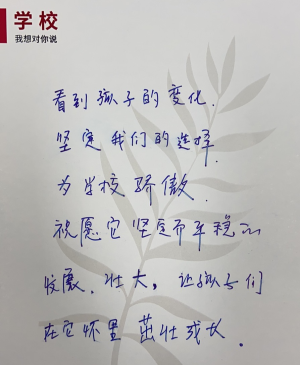 学校
我想对你说
看到孩子的变化.
坚定我们的选择
为学校骄傲.
祝愿它坚定而平稳的
发展、壮大，让孩子们
在它怀里茁壮成长.